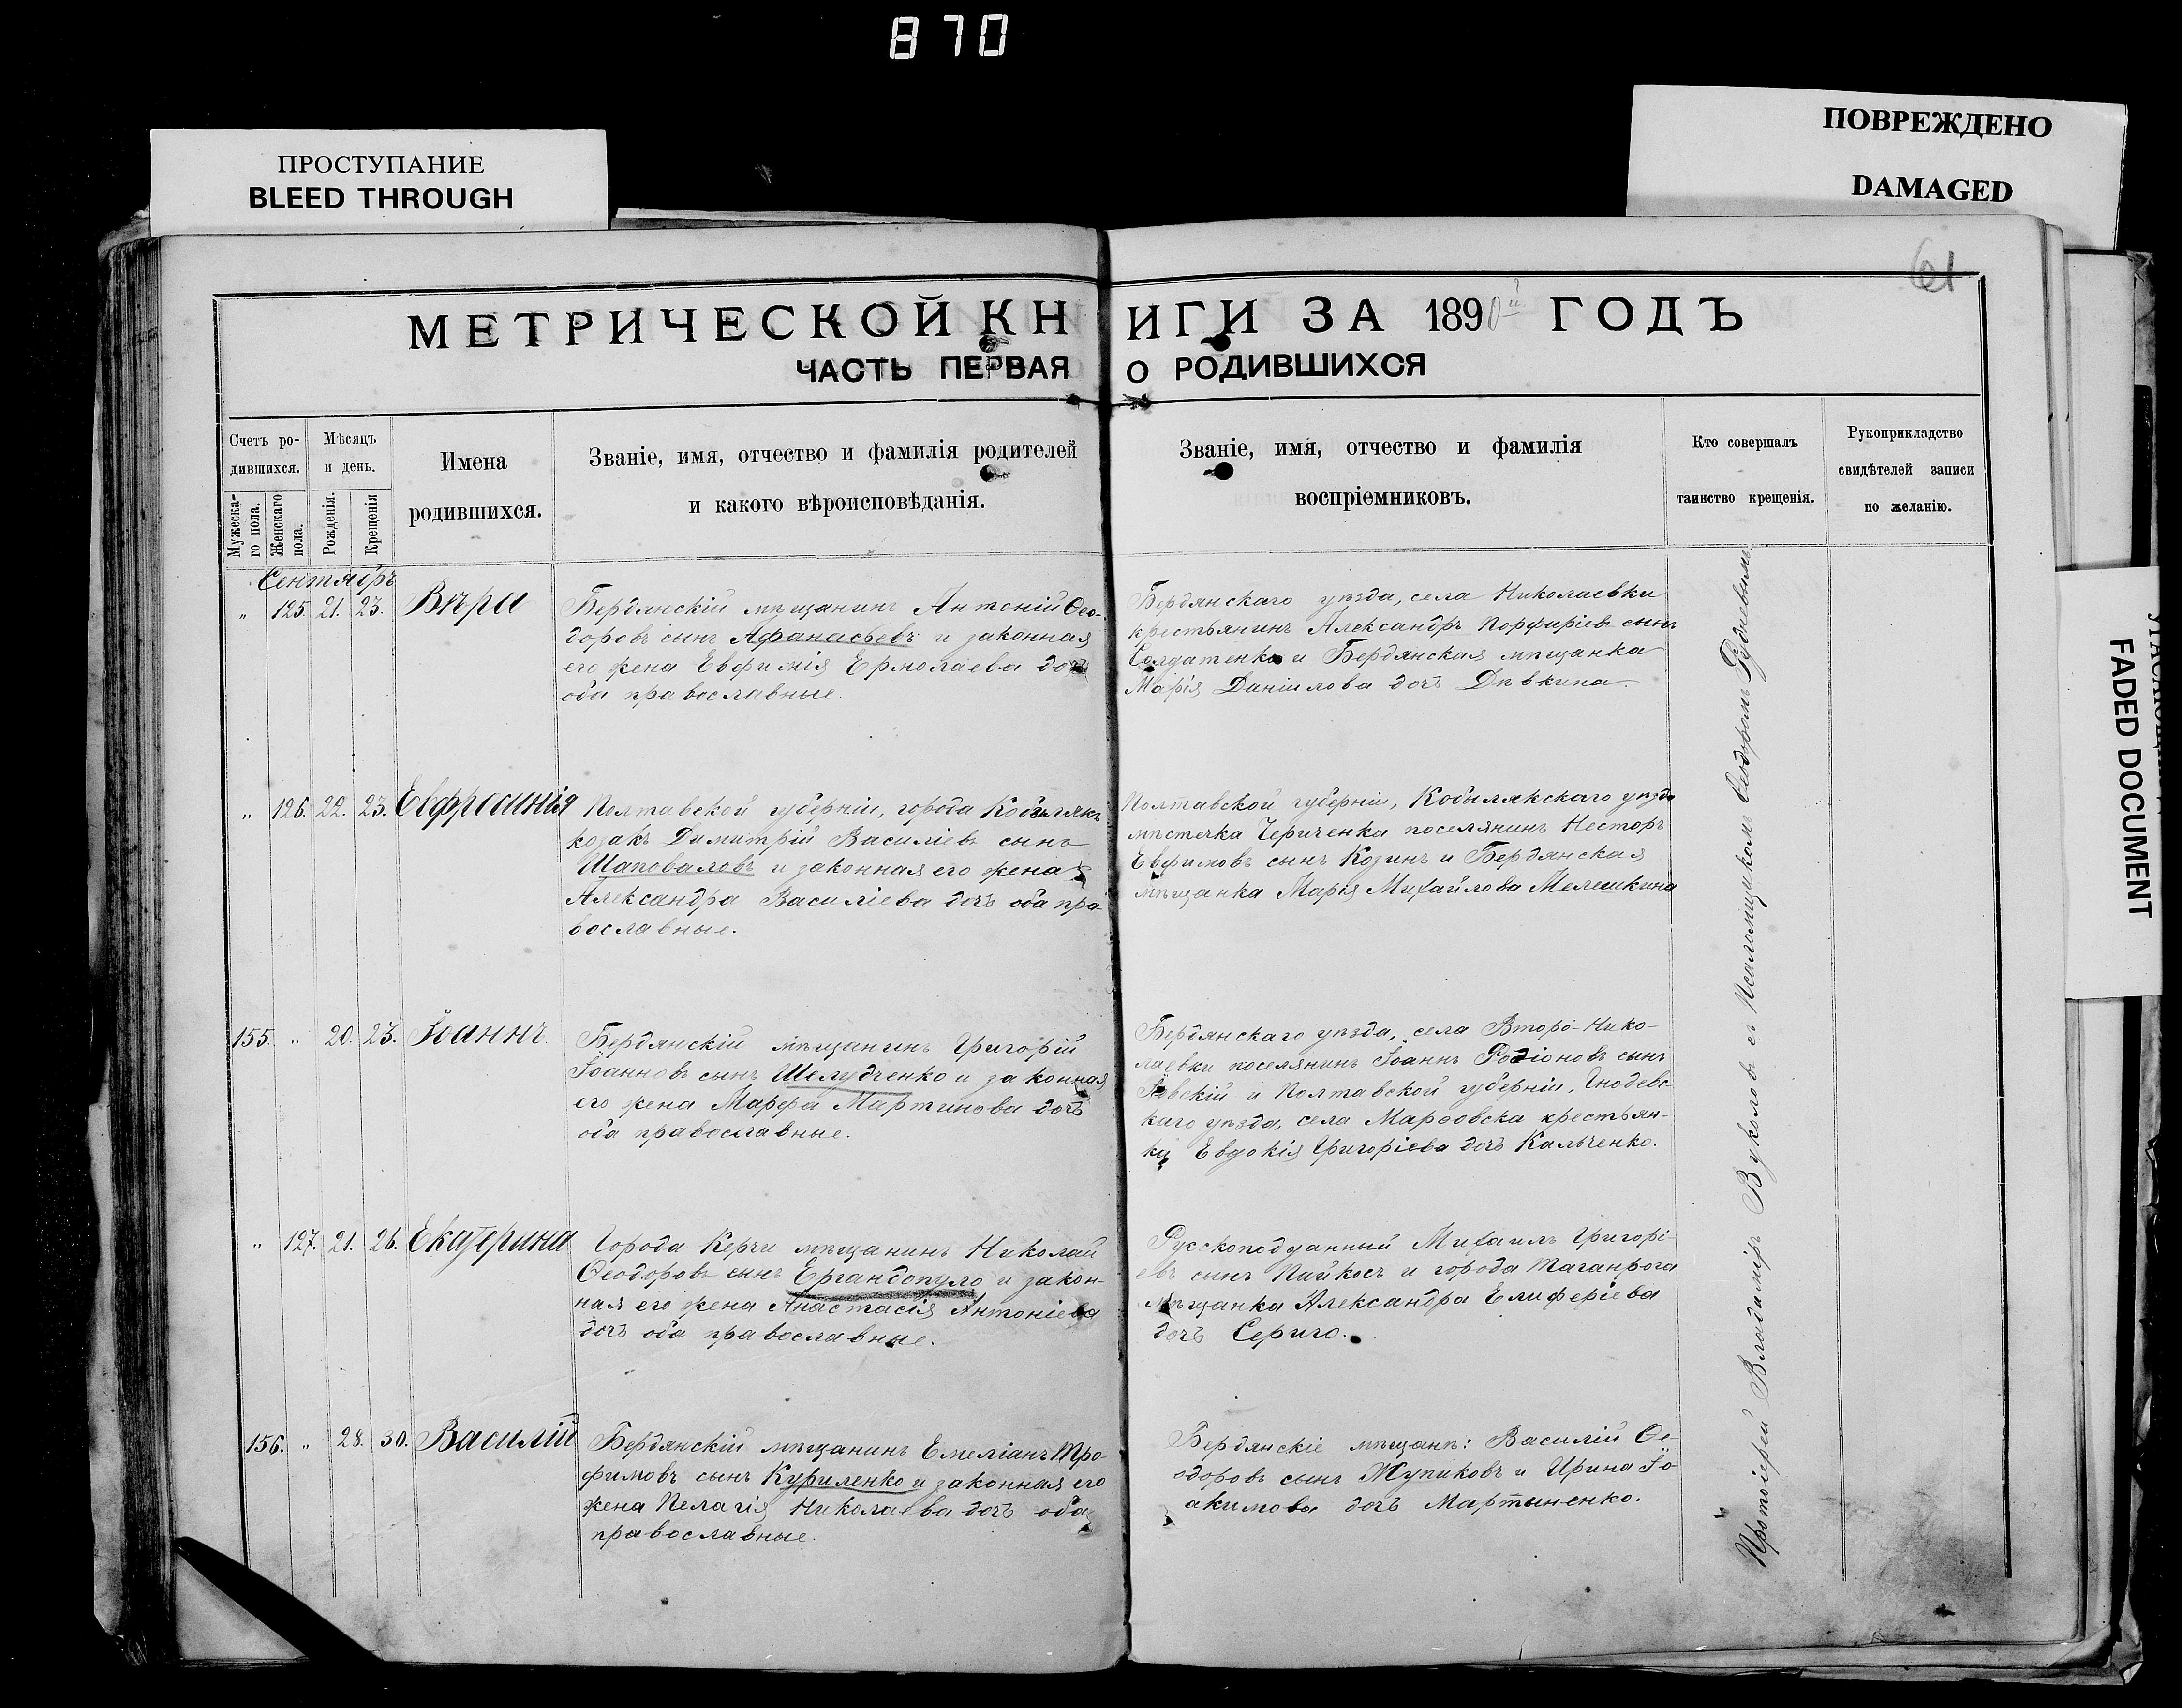 870
ПРОСТУПАНИЕ
BLEED THROUGH
ПОВРЕЖДЕНО
DAMAGED
FADED DOCUMENT
61
МЕТРИЧЕСКОЙ КНИГИ ЗА 1890й ГОДЪ
ЧАСТЬ ПЕРВАЯ О РОДИВШИХСЯ
Счетъ ро-
дившихся.
Мужеска-
го пола.
Женскаго
пола.
Мѣсяцъ
и день.
Рожденія.
Крещенія
Имена
родившихся.
Званіе, имя, отчество и фамилія родителей
и какого вѣроисповѣданія.
Званіе, имя, отчество и фамилія
воспріемниковъ.
Кто совершалъ
таинство крещенія.
Рукоприкладство
свидѣтелей записи
по желанію.
Сентябрь
„ 125. 21. 23. Вѣра
Бердянскій мѣщанинъ Антоній Ѳео-
доровъ сынъ Афанасьевъ и законная
его жена Евфимія Ермолаева дочь
оба православные.
Бердянскаго уѣзда, села Николаевки
крестьянинъ Александръ Порфиріевъ сынъ
Солдатенко и Бердянская мѣщанка
Марія Даніилова дочь Дѣвкина.
„ 126. 22. 23. Евфросинія
Полтавской губерніи, города Кобылякъ
козакъ Димитрій Василіевъ сынъ
Шаповаловъ и законная его жена
Александра Василіева дочь оба пра-
вославные.
Полтавской губерніи, Кобылякскаго уѣзда
мѣстечка поселянинъ Несторъ
Евфимовъ сынъ Козинъ и Бердянская
мѣщанка Марія Михайлова Мелешкина
155. „ 20. 23. Іоаннъ.
Бердянскій мѣщанинъ Григорій
Іоанновъ сынъ Шелудченко и законная
его жена Марфа Мартинова дочь
оба православные.
Бердянскаго уѣзда, села Второ-Нико-
лаевки поселянинъ Іоаннъ Родіоновъ сынъ
и Полтавской губерніи,
каго уѣзда, села крестьян-
ка Евдокія Григоріева дочь Кальченко.
„ 127. 21. 26. Екатерина
Города Керчи мѣщанинъ Николай
Ѳеодоровъ сынъ Ергандопуло и закон-
ная его жена Анастасія Антоніева
дочь оба православные.
Русскоподданный Михаилъ Григорі-
евъ сынъ и города Таганрога
мѣщанка Александра Елиферіева
дочь Сериго.
156. „ 28. 30. Василій
Бердянскій мѣщанинъ Емеліанъ Тро-
фимовъ сынъ Куриленко и законная его
жена Пелагія Николаева дочь оба
православные.
Бердянскіе мѣщане: Василій Ѳе-
одоровъ сынъ Жупиковъ и Ирина Іо-
акимова дочь Мартыненко.
Протоіерей Владиміръ Вуколовъ съ Псаломщикомъ Ѳеодоромъ